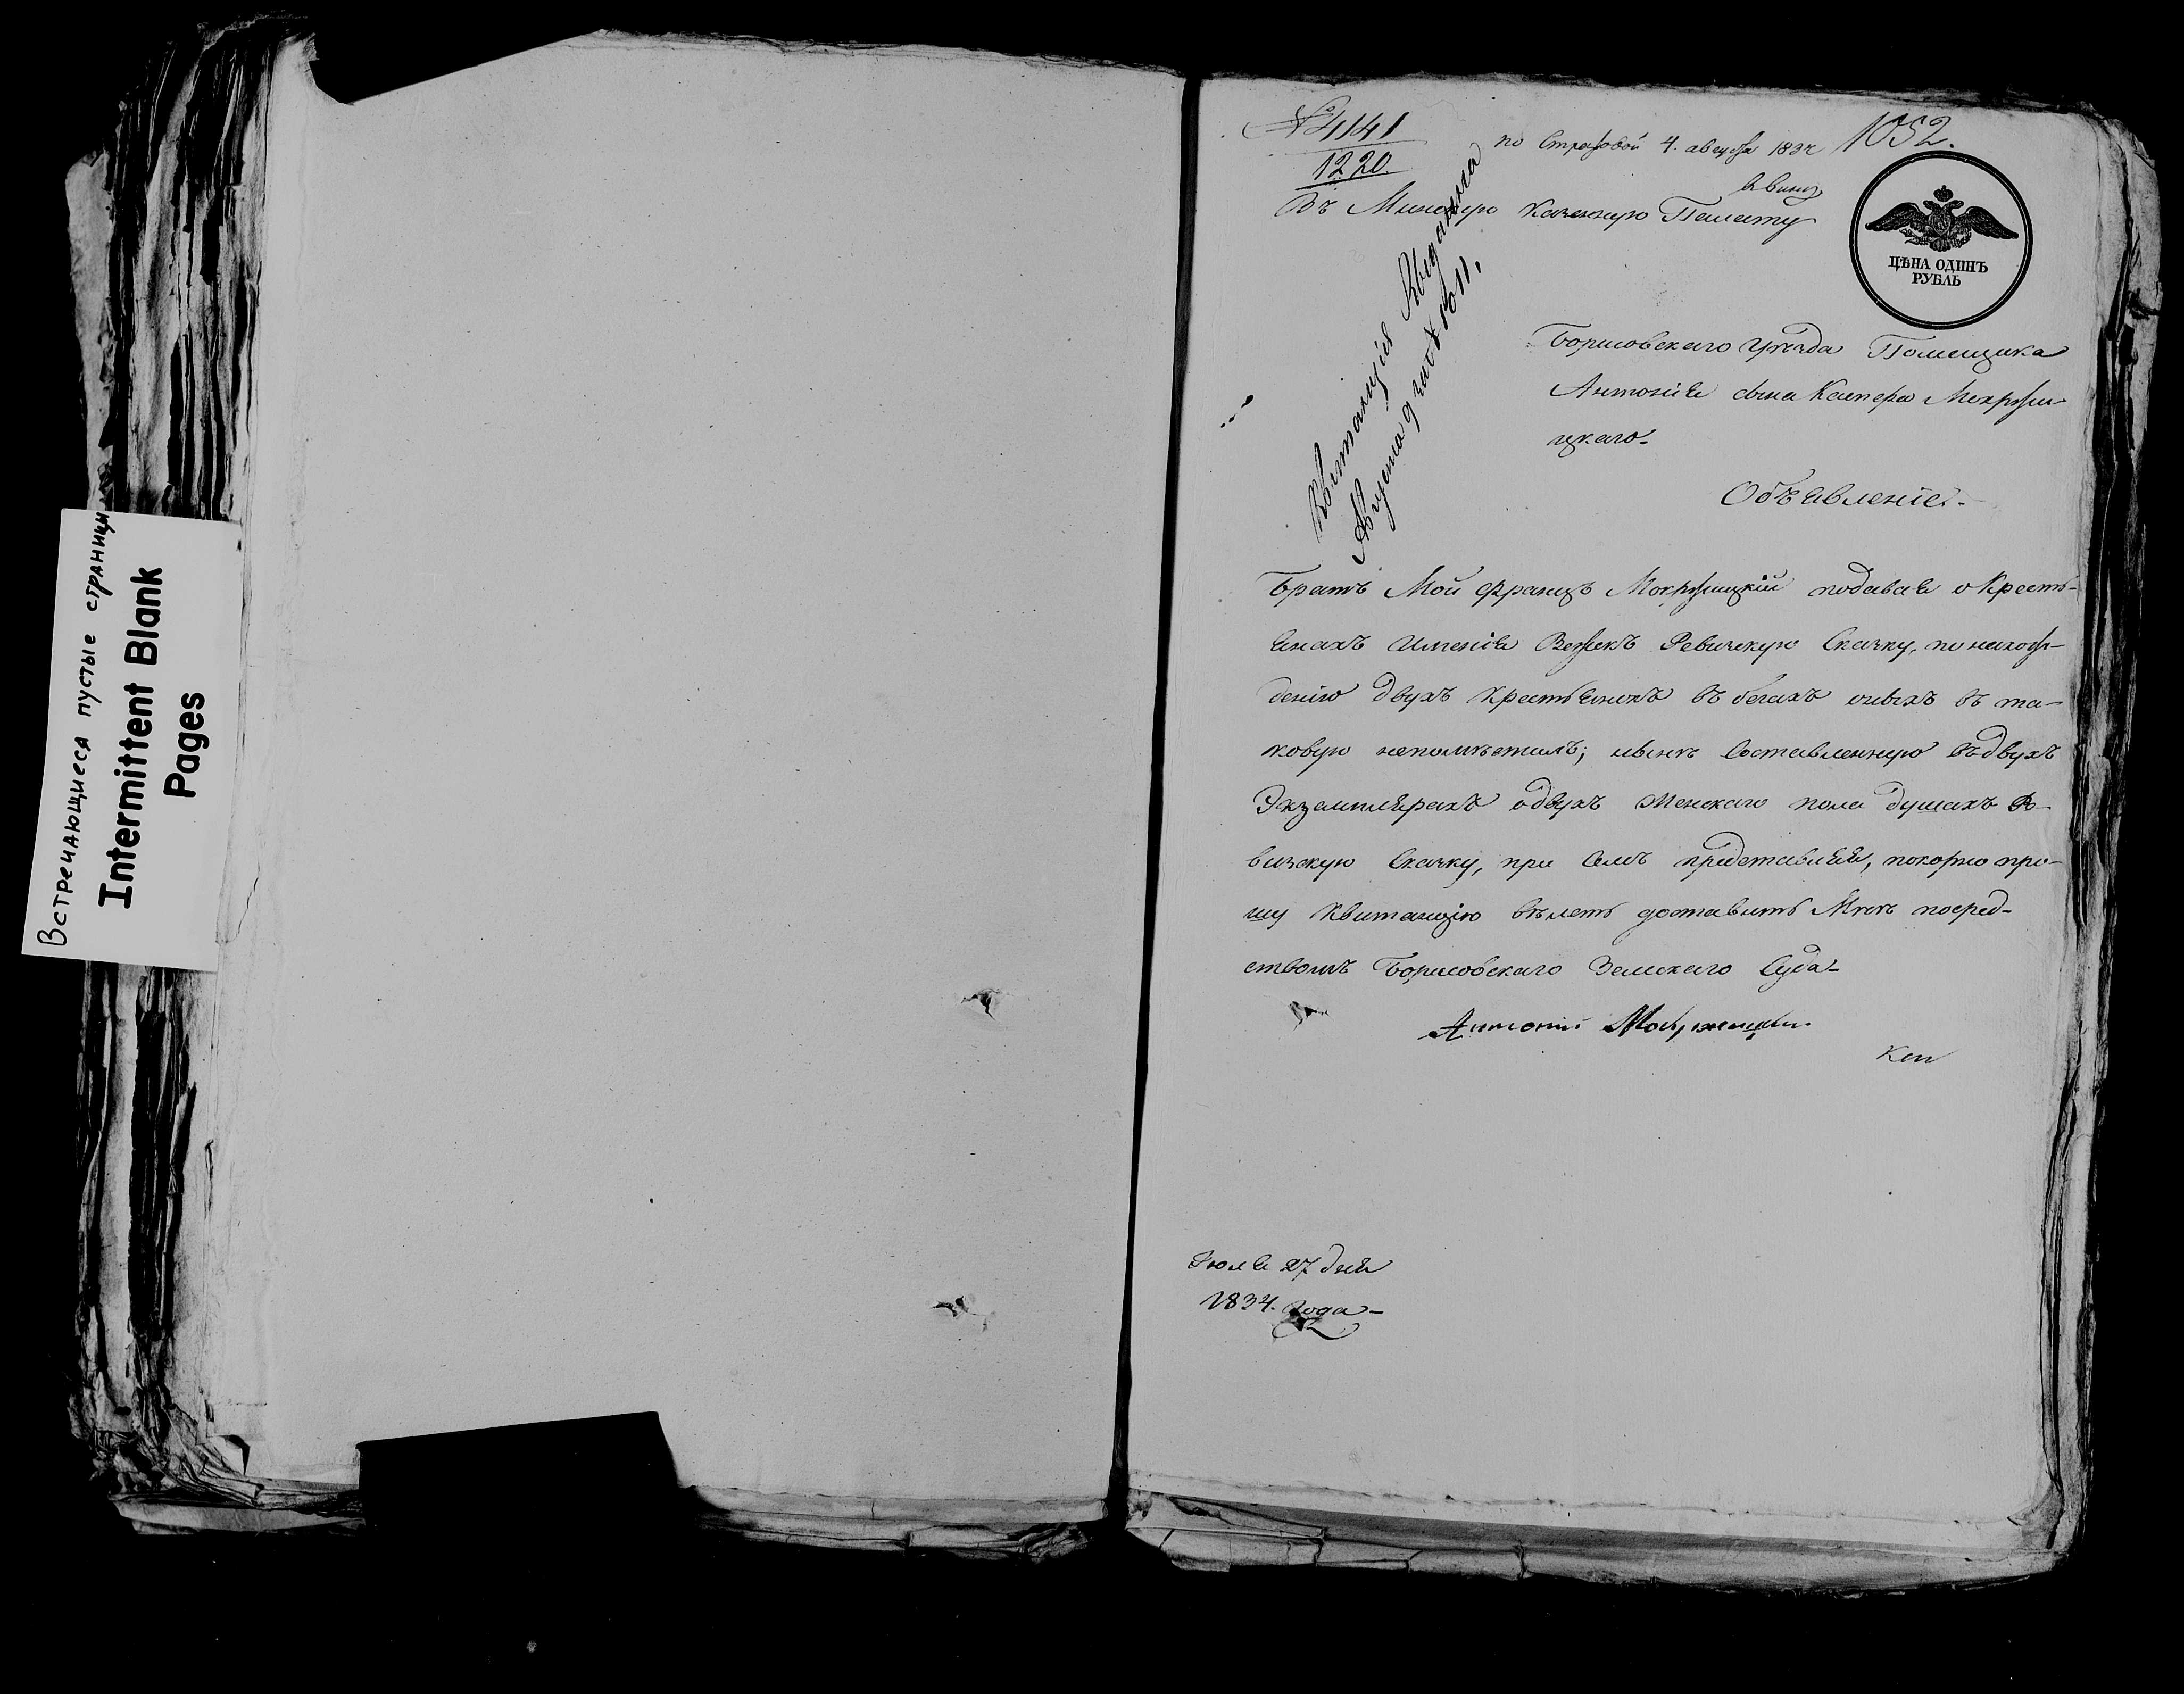 Встречающиеся пустые страницы
Intermittent Blank
Pages
№ 4141
1220.
по Страховой 4. августа 1834
1052.
Въ Минскую Казенную Палату
ЦѢНА ОДИНЪ
РУБЛЬ
Квитанція выдана
Августа 9 за № 1011.
Борисовскаго Уѣзда Помещика
Антонія сына Каспера Мокржи-
цкаго.
Объявленіе.
Братъ Мой Францъ Мокржицкій подавая о Кресть-
янахъ Именія Вежекъ Ревизскую Сказку, по нахож-
денію двухъ крестьянокъ въ бегахъ оныхъ въ та-
ковую непомѣстилъ; нынѣ Составленную въ двухъ
Экземплярахъ о двухъ Женскаго пола душахъ Ре-
визскую Сказку, при Семъ представляя, покорно про-
шу Квитанцію въ
доставить Мнѣ посред-
ствомъ Борисовскаго Земскаго Суда-
Антоній Мокржецкій
Іюля 27 дня
1834. Года-